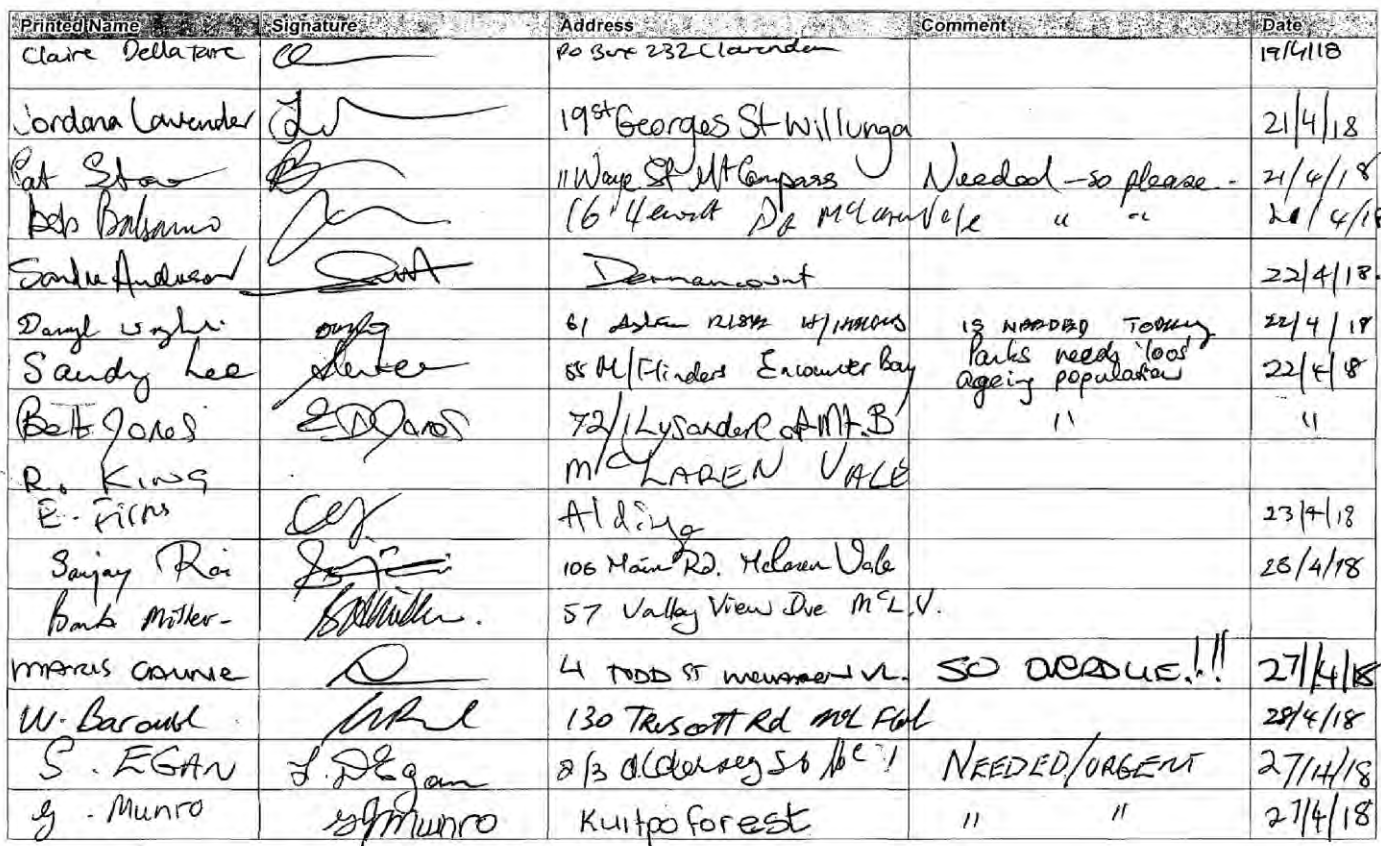 Printed Name Signature Address Comment Date
Claire Po Box 232 Clarendon 19/4/18
Jordana Lavender 19 St Georges St Willunga 21/4/18
Pat 11 Waye St Mt Compass Needed - so please - 21/4/18
Deb Balsamo 16 Hewitt Dr McLaren Vale " " 21/4/18
Sandra Anderson Dernancourt 22/4/18.
Daryl 61 IS NEEDED TODAY 22/4/18
Sandy Lee 55 M/Flinders Encounter Bay Parks needs 'loos' ageing population 22/4/18
Bett Jones E D Jones 72/1 Lysander Mt. B " "
R. KING McLAREN VALE
E. Aldinga 23/4/18
Sanjay Rai 106 Main Rd. McLaren Vale 25/4/18
Barb Miller - 57 Valley View Dve McL.V.
4 TODD ST SO OVERDUE!!! 27/4/18
W. 130 Truscott Rd McL Flat 28/4/18
S. EGAN S. D Egan 8/3 Aldersey St NEEDED/URGENT 27/4/18
G. Munro G J Munro Kuitpo forest " " 27/4/18